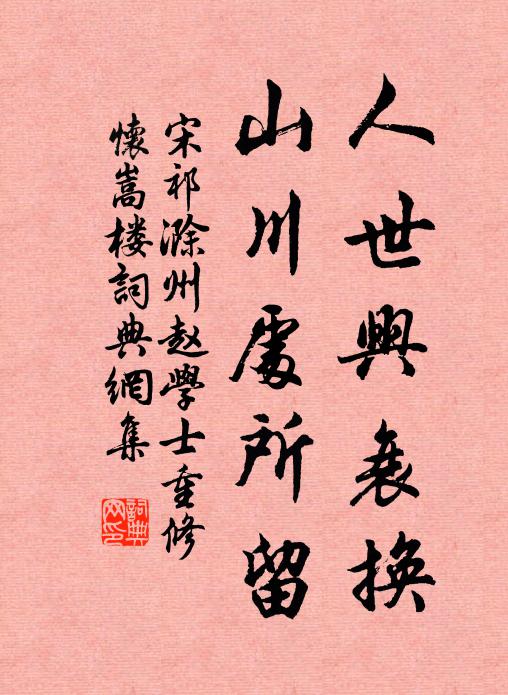 人世興衰換
山川處所留
宋祁滁州赵學士重修
懷嵩楼詞典網集
詞典网印